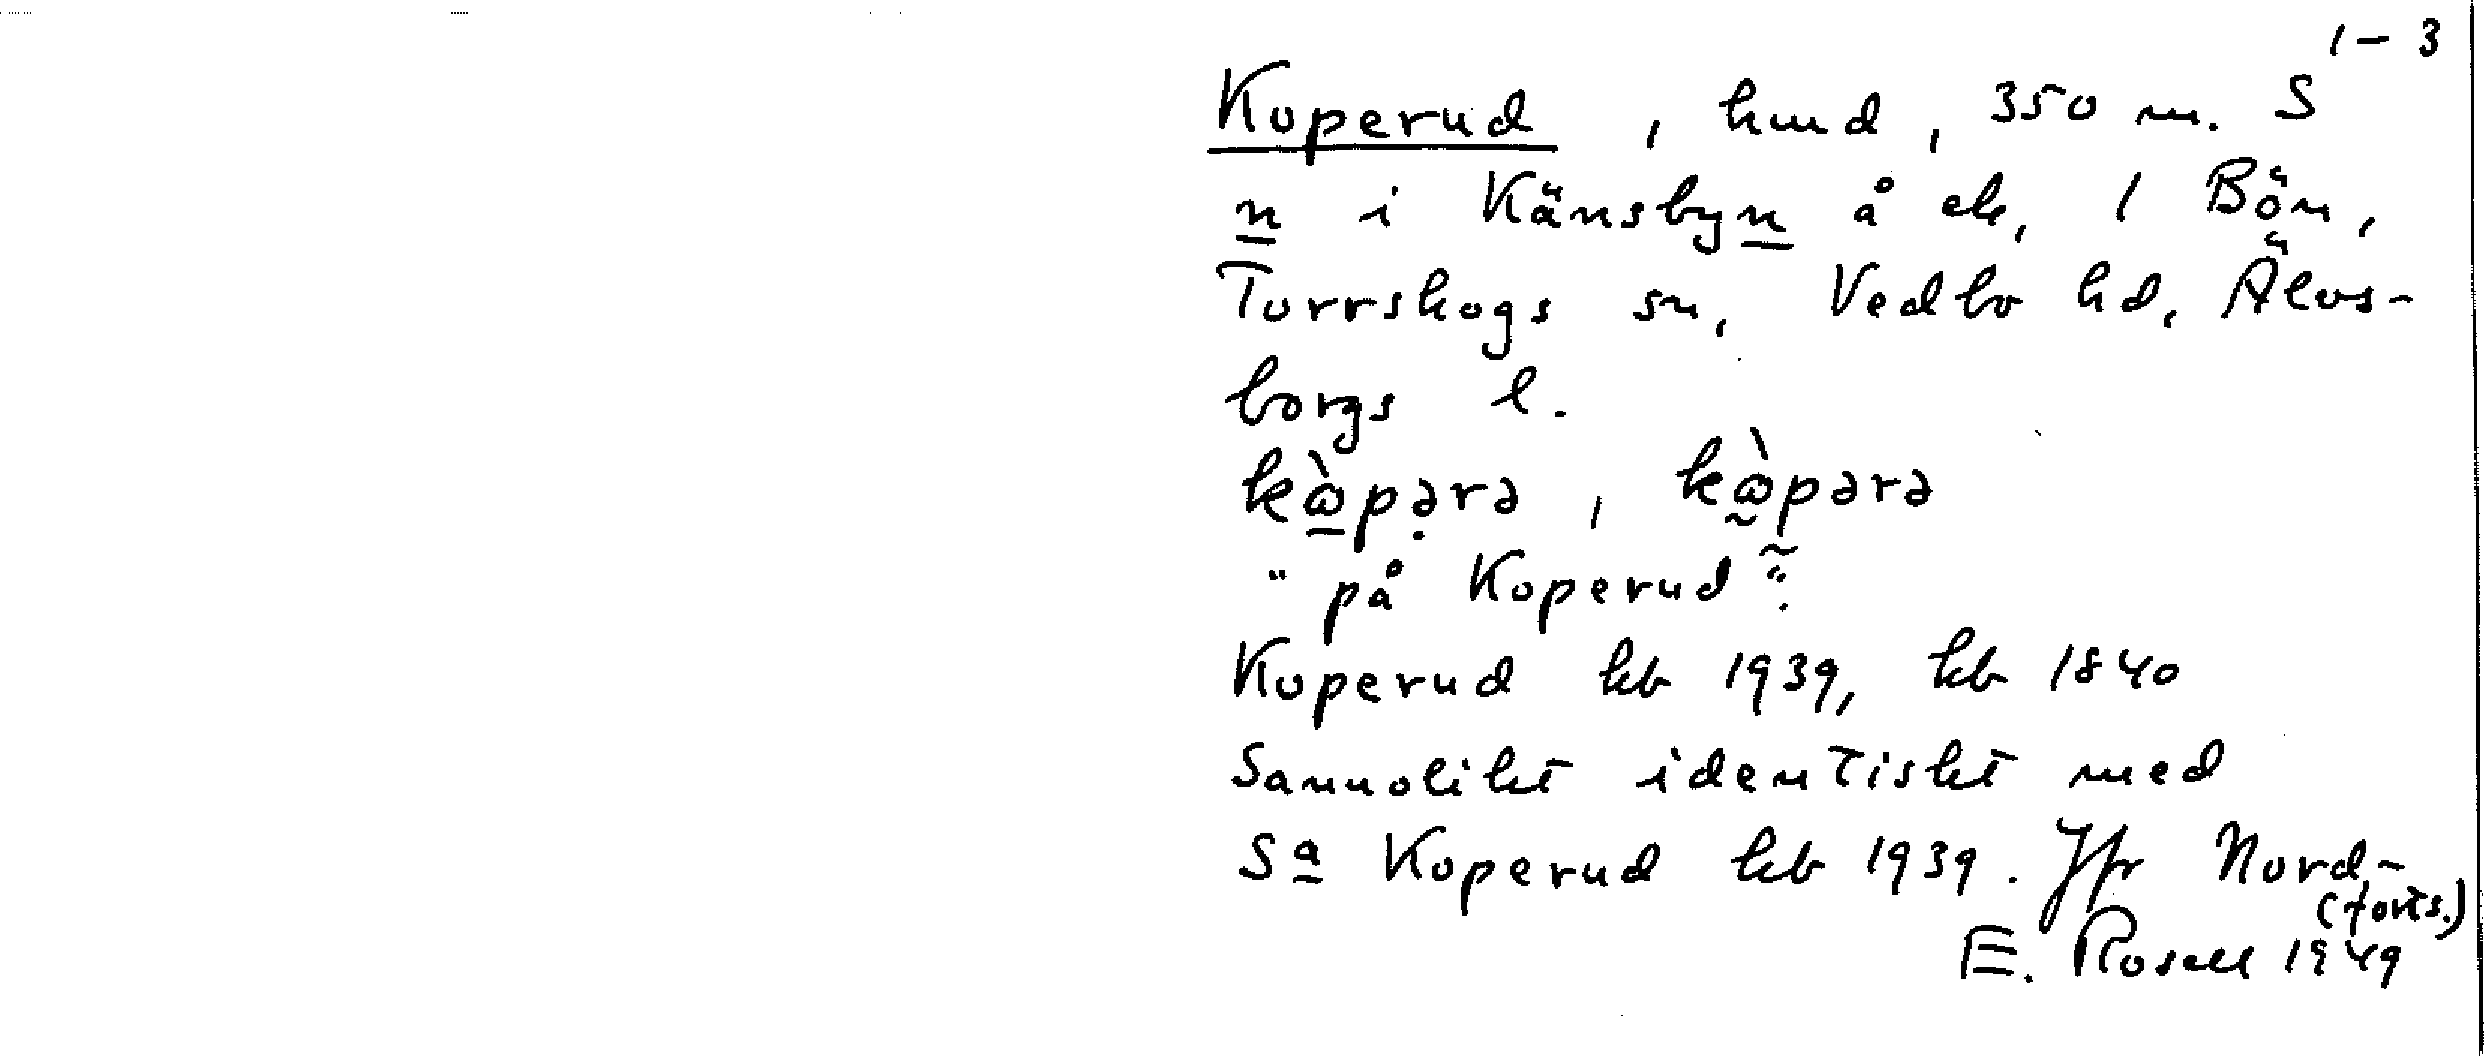 1–3
Koperud, hmd, 350 m. S
n i Känsbyn å ek, 1 Bön,
Torrskogs sn, Vedbo hd, Älvs-
borgs l.
kὼpərə, kὼpərə
"på Koperud".
Koperud kb 1939, kb 1840
Sannolikt identiskt med
Sa Koperud kb 1939. Jfr Nord-
(forts.)
E. Rosell 1949